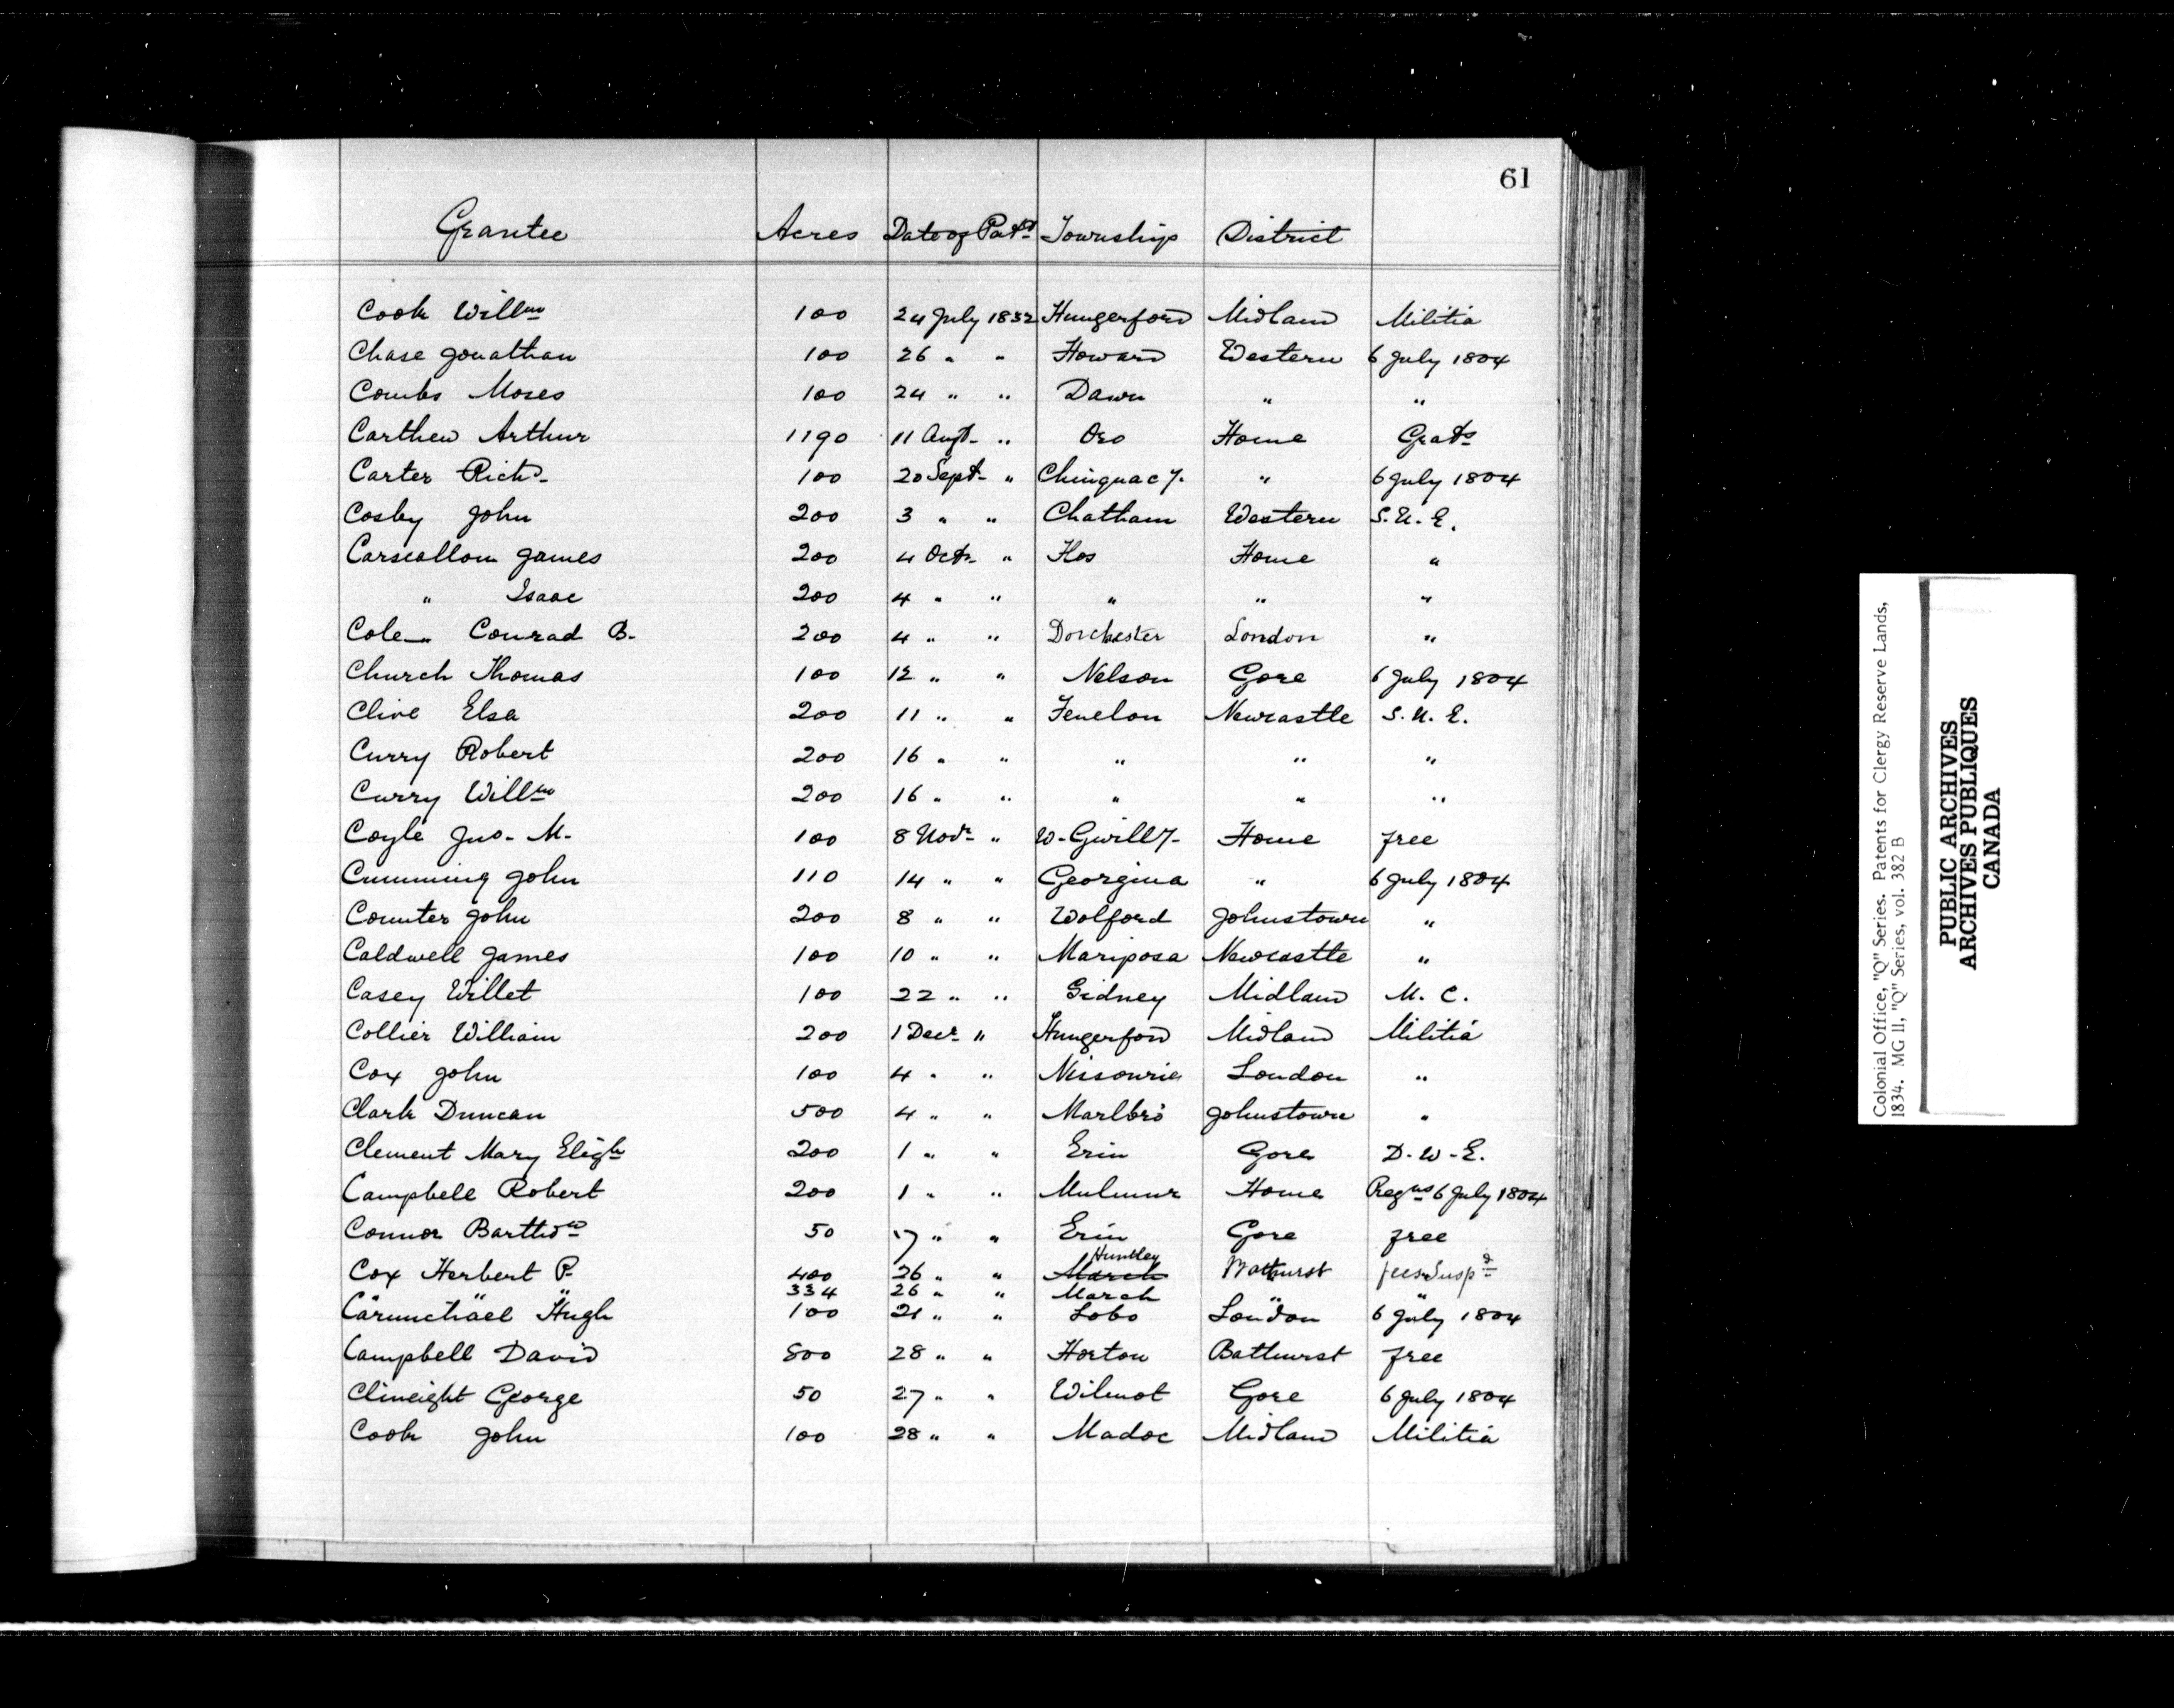 61
Grantee Acres Date of Pat^t Township District
Cook Will^m 100 24 July 1832 Hungerford Midland Militia
Chase Jonathan 100 26 " " Howard Western 6 July 1804
Combs Moses 100 24 " " Dawn " "
Carthew Arthur 1190 11 Augt- " Oro Home Grats
Carter Rich^d- 100 20 Sept- " Chinguacy. " 6 July 1804
Cosby John 200 3 " " Chatham Western S.U.E.
Carscallon James 200 4 Octr- " Flos Home "
" Isaac 200 4 " " " " "
Cole " Conrad B- 200 4 " " Dorchester London "
Church Thomas 100 12 " " Nelson Gore 6 July 1804
Clive Elsa 200 11 " " Fenelon Newcastle S.U.E.
Curry Robert 200 16 " " " " "
Curry Will^m 200 16 " " " " "
Coyle Jno- M- 100 8 Novr- " W-Gwilly- Home free
Cumming John 110 14 " " Georgina " 6 July 1804
Counter John 200 8 " " Wolford Johnstown "
Caldwell James 100 10 " " Mariposa Newcastle "
Casey Willet 100 22 " " Sidney Midland M. C.
Collier William 200 1 Decr- " Hungerford Midland Militia
Cox John 100 4 " " Nissourie London "
Clark Duncan 500 4 " " Marlbro' Johnstown "
Clement Mary Eliz^h 200 1 " " Erin Gore D-W-E.
Campbell Robert 200 1 " " Mulmur Home Reg^ns 6 July 1804
Connor Barttw^w 50 17 " " Erin Gore free
Huntley
Cox Herbert P- 400 26 " " March Bathurst fees Susp^d
" " 334 26 " " March " "
Carmichael Hugh 100 21 " " Lobo London 6 July 1804
Campbell David 800 28 " " Horton Bathurst free
Climeight George 50 27 " " Wilmot Gore 6 July 1804
Cook John 100 28 " " Madoc Midland Militia
Colonial Office, "Q" Series. Patents for Clergy Reserve Lands,
1834. MG 11, "Q" Series, vol. 382 B
PUBLIC ARCHIVES
ARCHIVES PUBLIQUES
CANADA